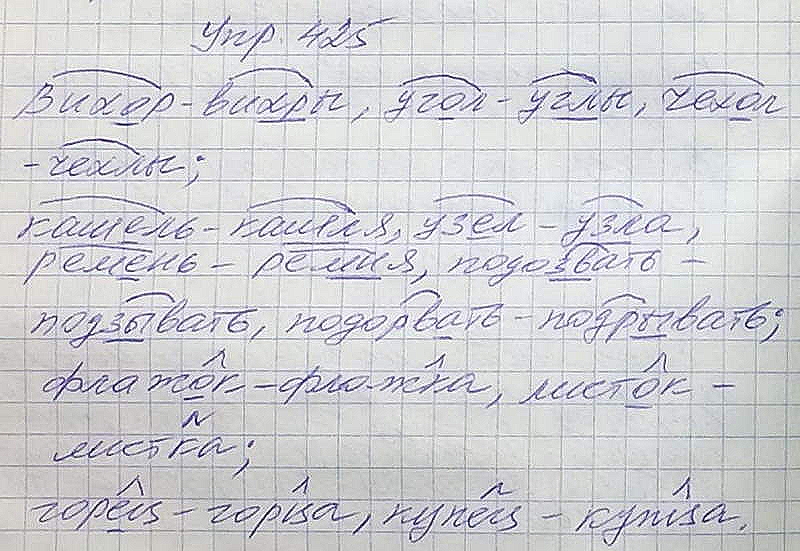 Упр. 425
Вихор-вихры, угол-углы, чехол
-чехлы;
кашель-кашля, узел-узла,
ремень-ремня, подозвать-
подзывать, подорвать-подрывать;
флажок-флажка, листок-
листка;
горец-горца, купец-купца.